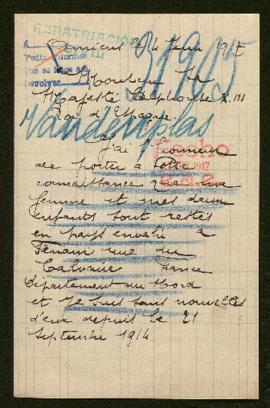 REPATRIACION
Amiens le 4 Juin 1917
A
Pedir informes
que se haga sin
devolver
31905
Monsieur Sa
Majesté Alphonse XIII
Roi d'Espagne
Vandenplas
J'ai l'honneur
de porter à votre
1917
connaissance que ma
femme et mes deux
enfants sont restés
en pays envahi à
Fenain rue du
Calvaire France
Département du Nord
et je suis sans nouvelles
d'eux depuis le 21
Septembre 1914